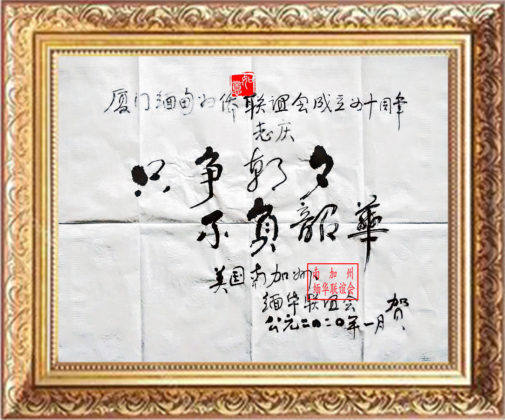 厦门缅甸归侨联谊会成立四十周年
志庆
只争朝夕
不负韶華
美国南加州
缅华联谊会
公元二〇二〇年一月贺
南加州
缅华联谊会